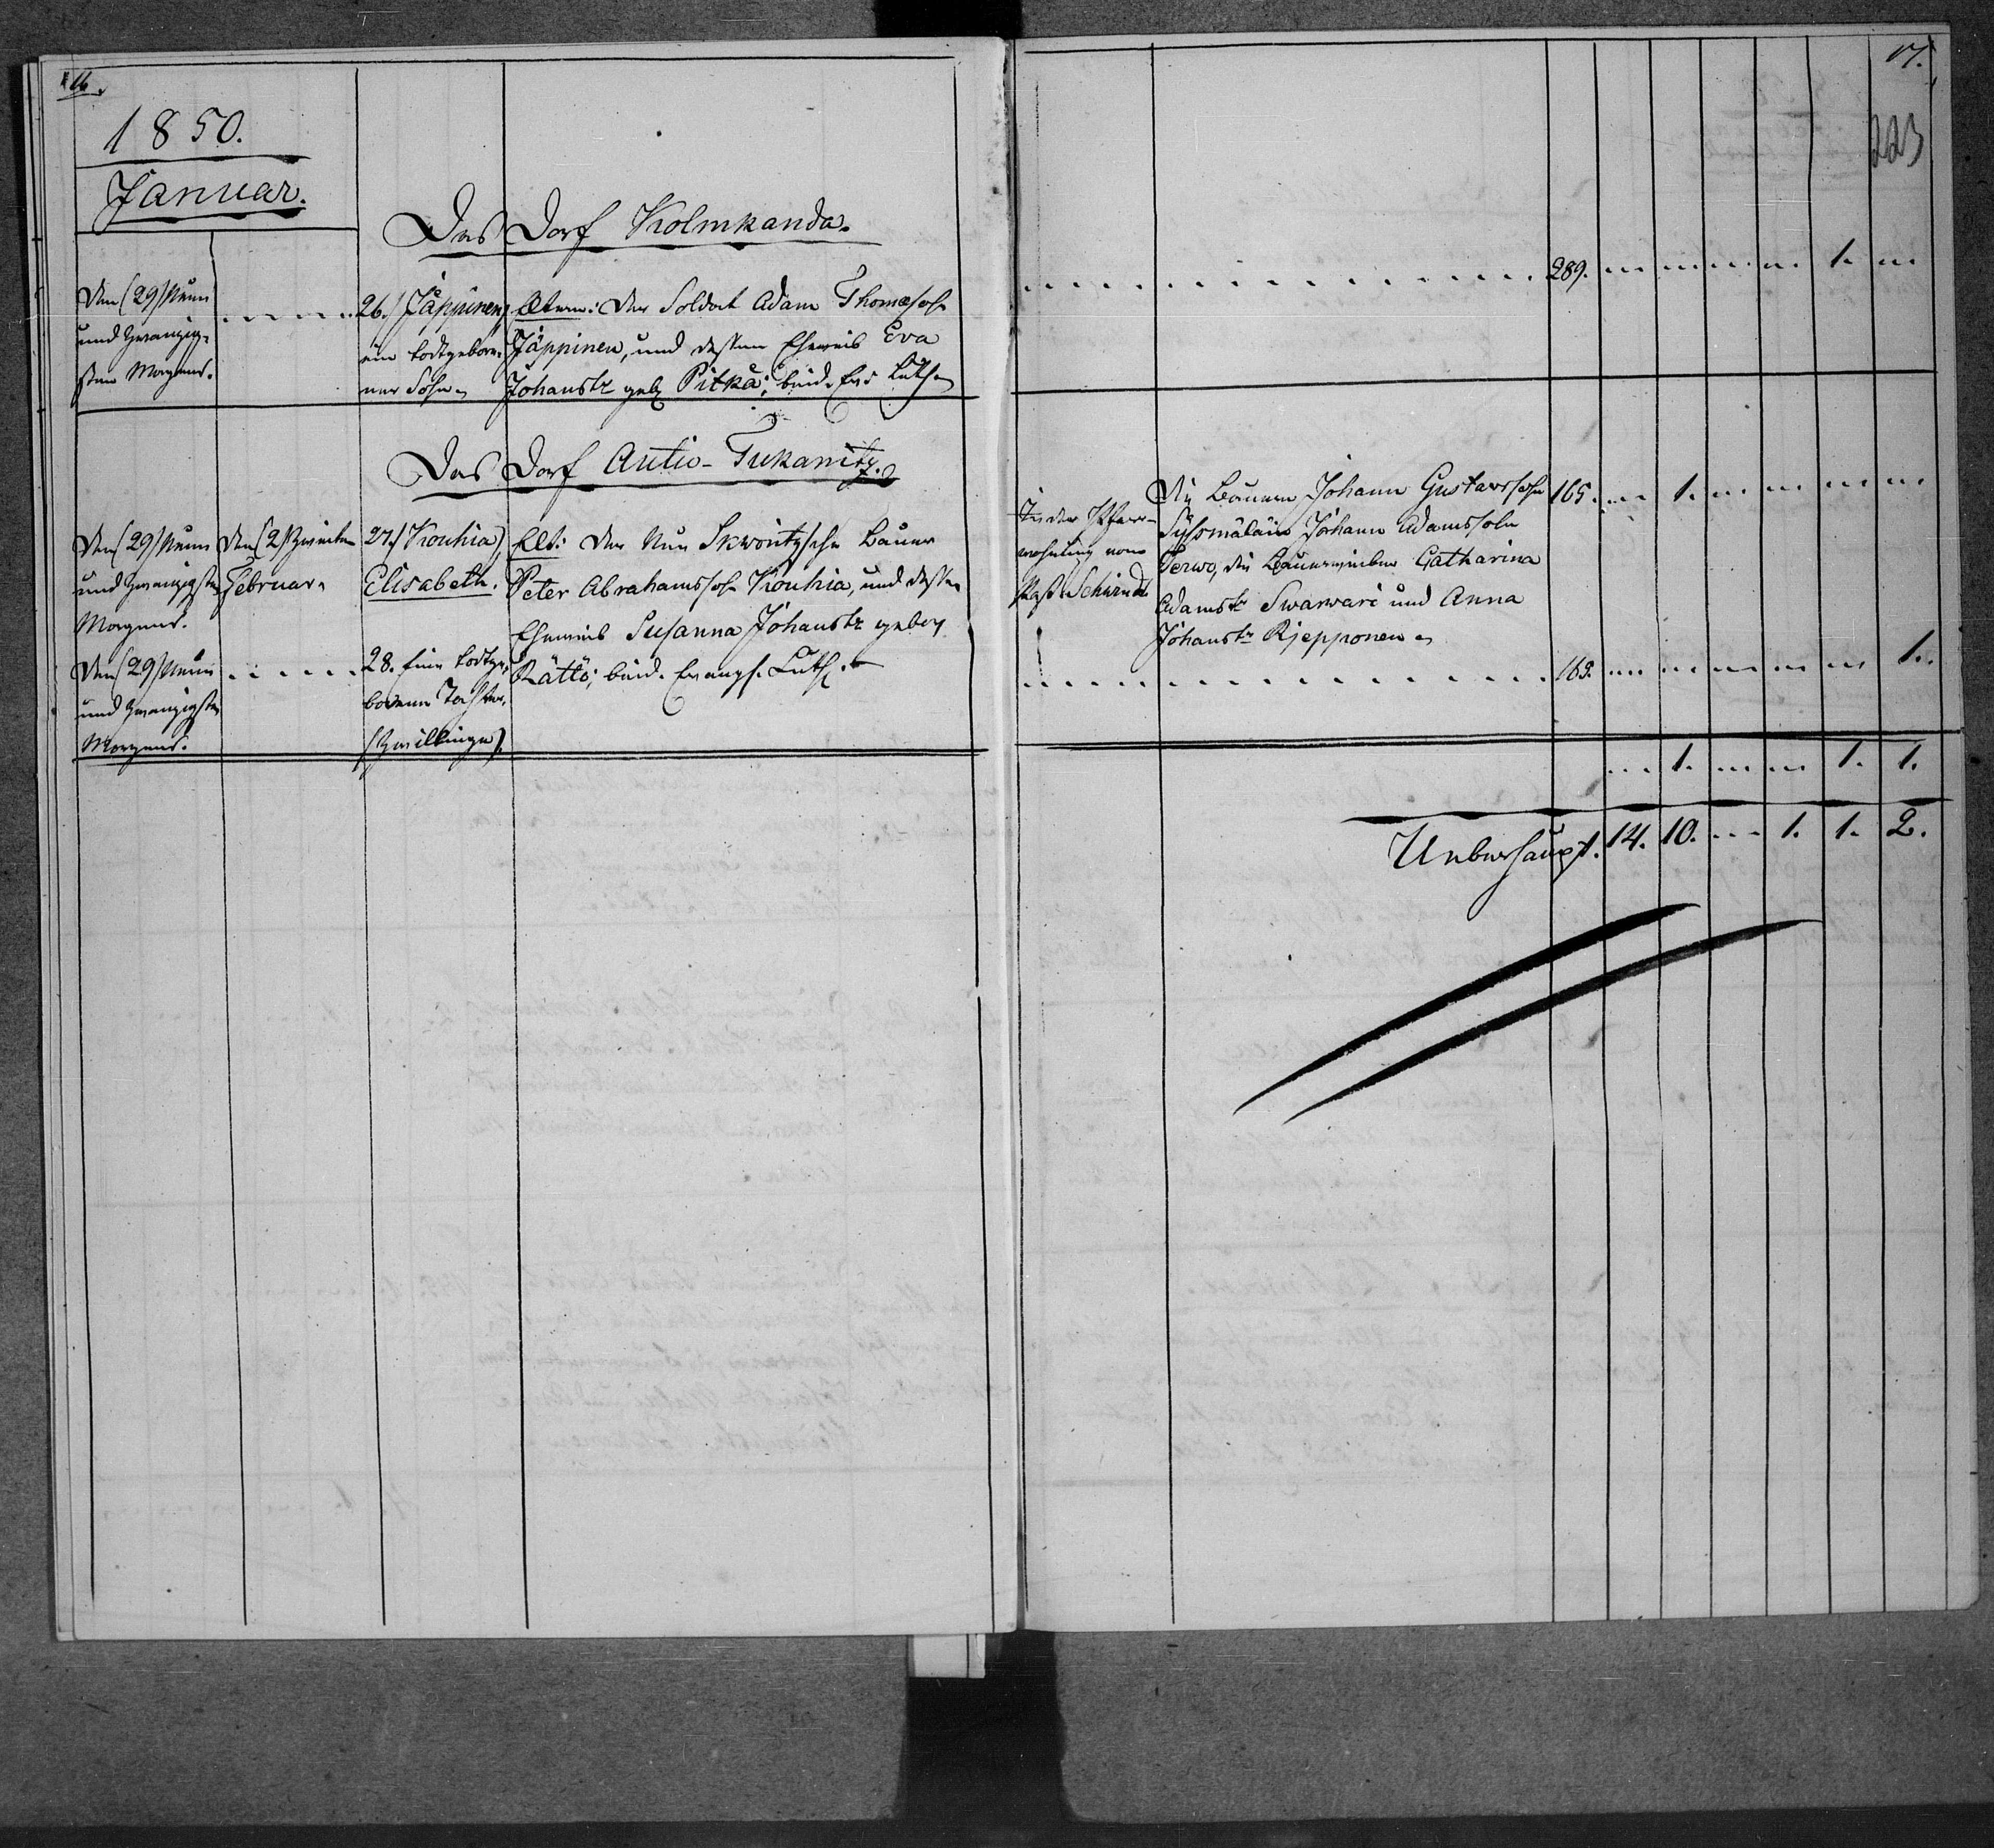 16.
1850.
Januar.
Das Dorf Kolmkanda.
Den (29) Neun
und zwanzig-
sten Morgens.
26.) Jäppinen,
ein todtgebore-
ner Sohn.
Eltern: Der Soldat Adam Thomassohn
Jäppinen, und dessen Eheweib Eva
Johanstr geb. Pitkä; beide Ev. Luth.
Das Dorf Autio-Tukanitz.
Den (29) Neun
und zwanzigsten
Morgens.
Den (2) Zweiten
Februar.
27.) Kouhia,
Elisabeth.
Elt: Der Neu Skworitzsche Bauer
Peter Abrahamssohn Kouhia, und dessen
Eheweib Susanna Johanstr geboren
Rättö; beide Evangl. Luth.
Den (29) Neun
und zwanzigsten
Morgens.
28. Eine todtge-
borene Tochter.
(Zwillinge).
17.
223
289. 1.
In der Pfarr-
wohnung vom
Past. Schwindt
Die Bauern Johann Gustavssohn
Johann Adamssohn
Terwo, die Bauerweiber Catharina
Adamstr Swarwari und Anna
Johanstr Rjepponen
165. 1.
165. 1.
1. 1. 1.
Ueberhaupt. 14. 10. 1. 1. 2.